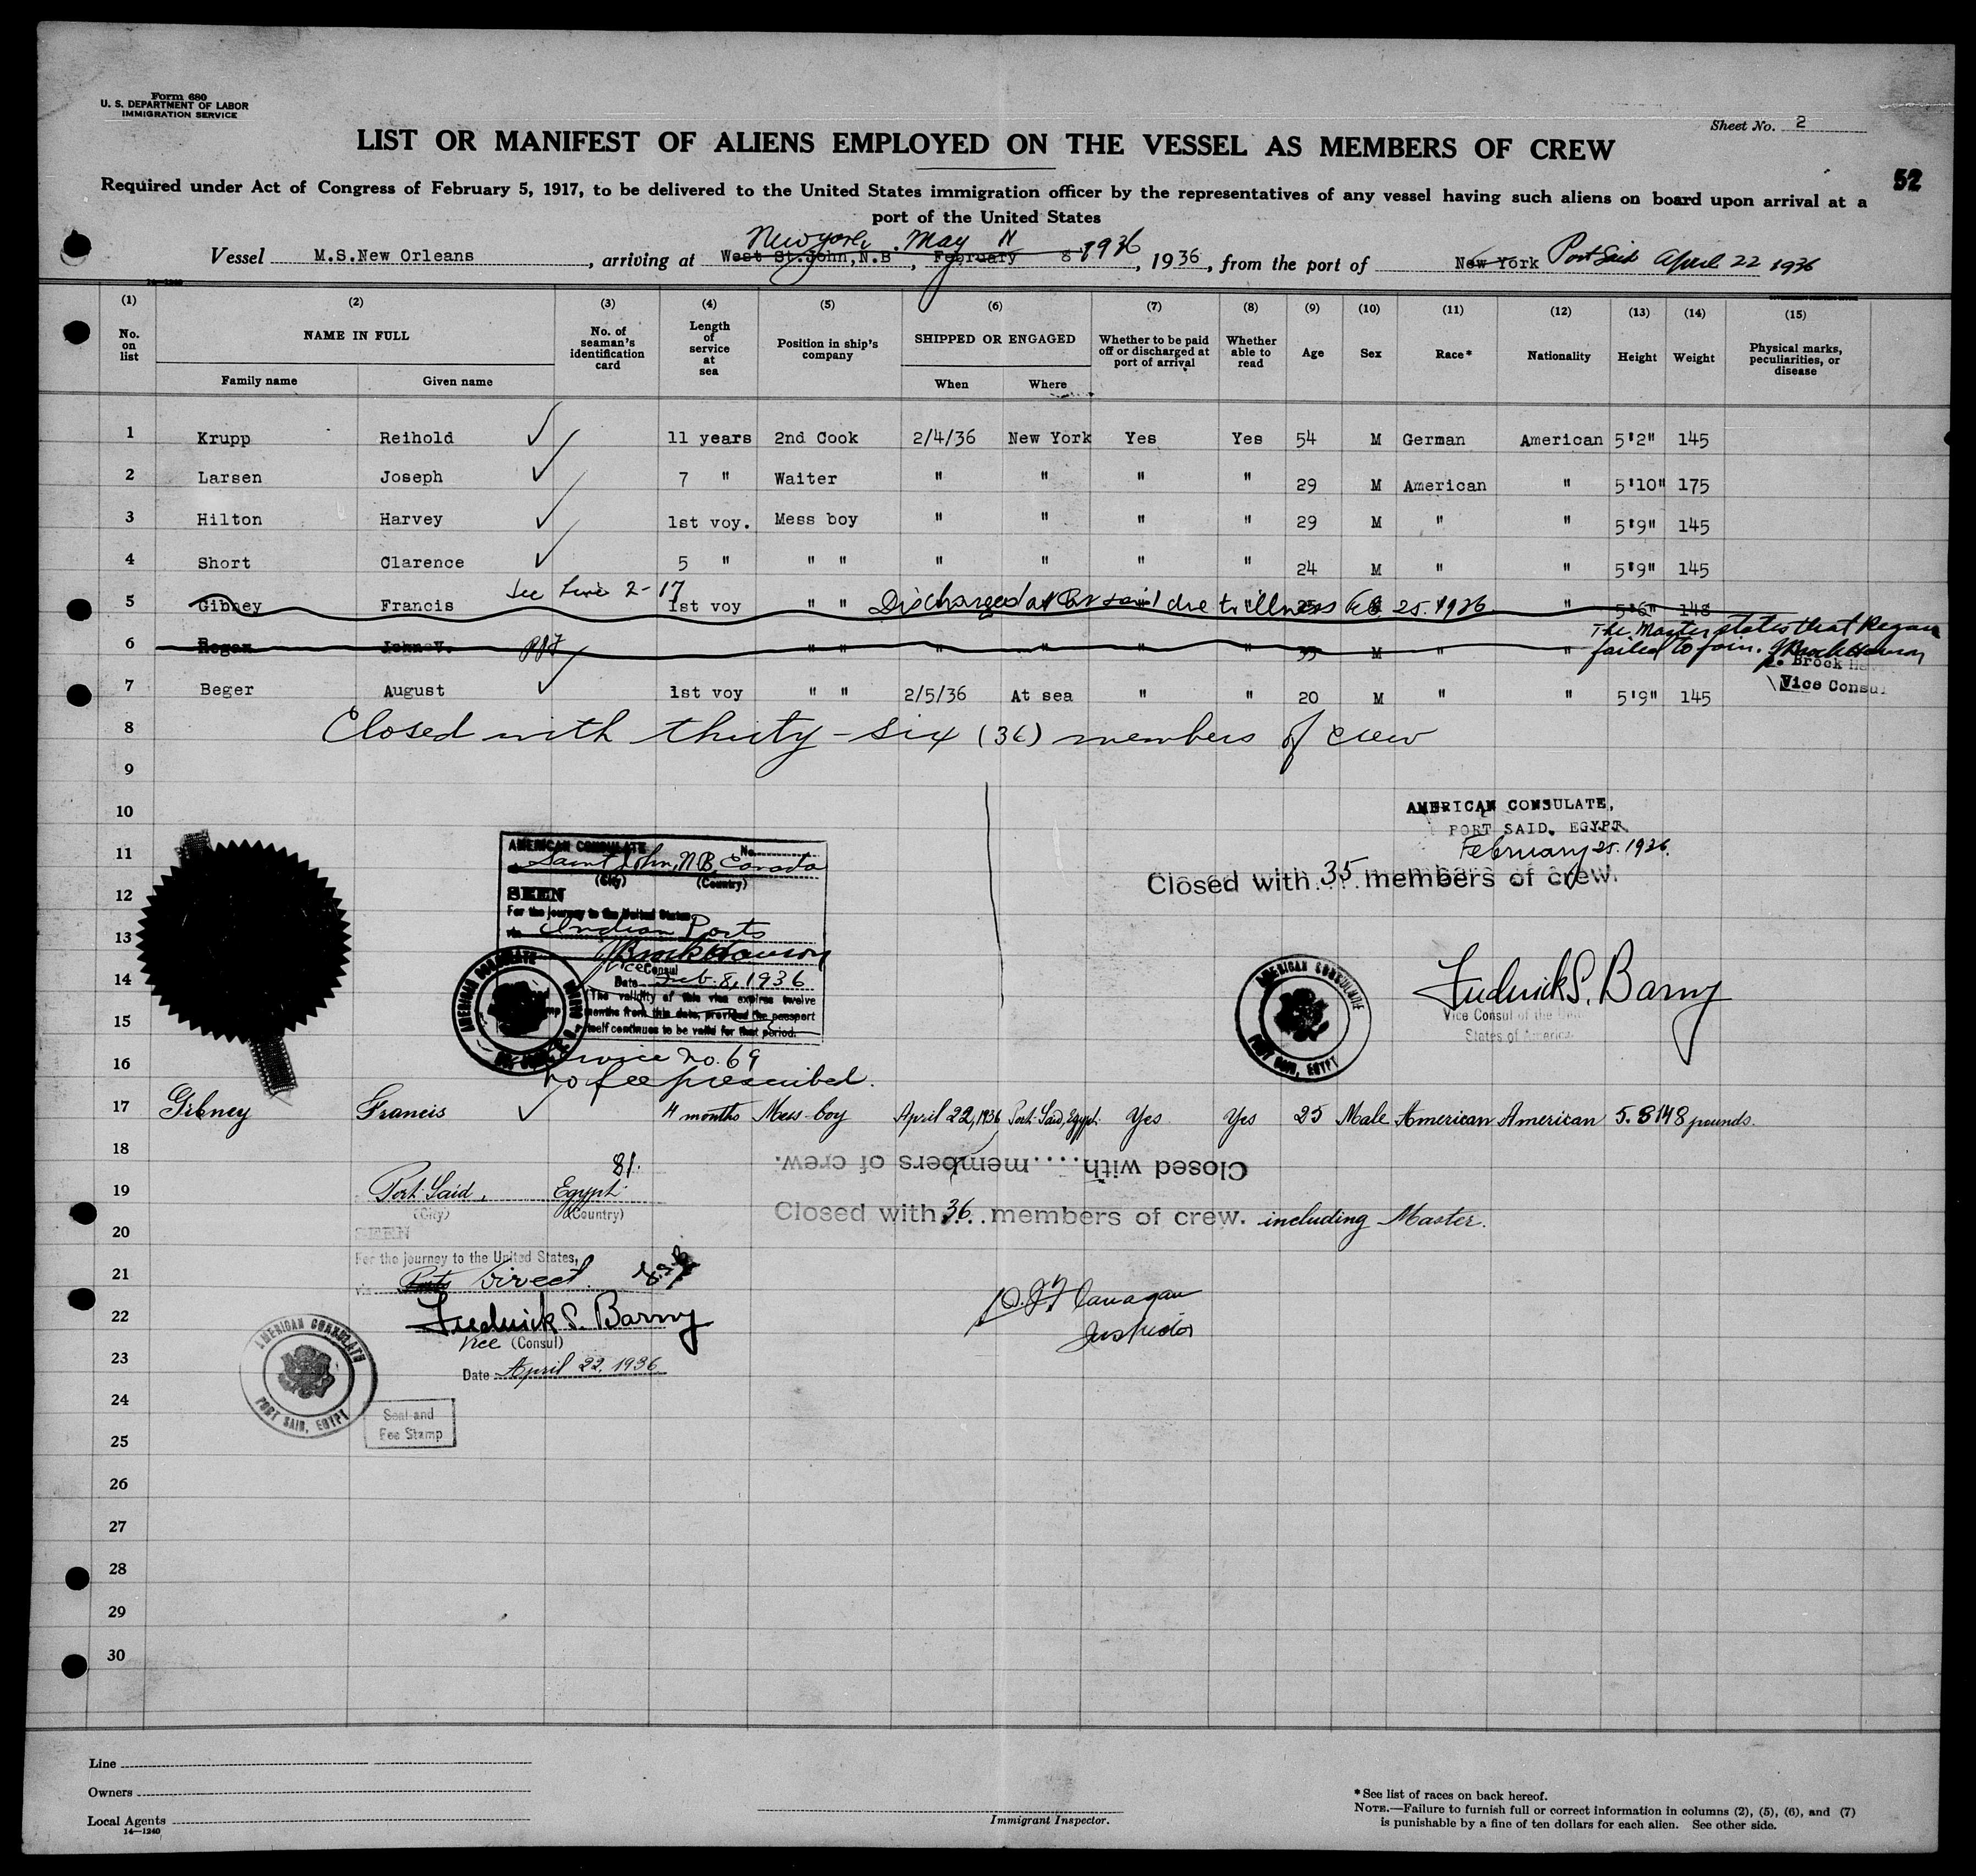 Form 680
U. S. DEPARTMENT OF LABOR
IMMIGRATION SERVICE
Sheet No. 2
LIST OR MANIFEST OF ALIENS EMPLOYED ON THE VESSEL AS MEMBERS OF CREW
52
Required under Act of Congress of February 5, 1917, to be delivered to the United States immigration officer by the representatives of any vessel having such aliens on board upon arrival at a
port of the United States
New York, May 11 1936
Vessel M.S.New Orleans, arriving at West St.John,N.B, February 8, 1936, from the port of New York Port Said April 22 1936
(1) (2) (3) (4) (5) (6) (7) (8) (9) (10) (11) (12) (13) (14) (15)
No. on list NAME IN FULL Family name Given name No. of seaman's identification card Length of service at sea Position in ship's company SHIPPED OR ENGAGED When Where Whether to be paid off or discharged at port of arrival Whether able to read Age Sex Race* Nationality Height Weight Physical marks, peculiarities, or disease
1 Krupp Reihold 11 years 2nd Cook 2/4/36 New York Yes Yes 54 M German American 5'2" 145
2 Larsen Joseph 7 " Waiter " " " " 29 M American " 5'10" 175
3 Hilton Harvey 1st voy. Mess boy " " " " 29 M " " 5'9" 145
4 Short Clarence 5 " " " " " " " 24 M " " 5'9" 145
See Line 2-17
5 Gibney Francis 1st voy " " Discharged at Port Said due to illness Feb 25. 1936 " 5'6" 148
The Master states that Regan
6 Regan John V. " " " " " " 35 M " " failed to join. J Brock Havron
J. Brock Ha
7 Beger August 1st voy " " 2/5/36 At sea " " 20 M " " 5'9" 145 Vice Consul
8 Closed with thirty-six (36) members of crew
9
10 AMERICAN CONSULATE,
PORT SAID, EGYPT.
11 February 25. 1936.
Closed with 35 members of crew.
AMERICAN CONSULATE No.
Saint John, N.B. Canada
(City) (Country)
12 SEEN
For the journey to the United States
13 via Indian Ports
J Brock Havron
Vice Consul
14 Date Feb. 8, 1936
(The validity of this visa expires twelve
months from this date, provided the passport
15 itself continues to be valid for that period.
Frederick S. Barny
Vice Consul of the United
States of America
AMERICAN CONSULATE
AMERICAN CONSULATE PORT SAID, EGYPT
16 Service No. 69
No fee prescribed.
17 Gibney Francis 4 months Mess boy April 22, 1936 Port Said, Egypt Yes Yes 25 Male American American 5.8 148 pounds.
18 Closed with.....members of crew.
81.
19 Port Said, Egypt
(City) (Country)
Closed with 36 members of crew. including Master.
20 SEEN
For the journey to the United States,
21 via Ports Direct
22 Frederick S. Barny
Vice (Consul)
23 Date April 22. 1936
Flanagan
Inspector
AMERICAN CONSULATE PORT SAID, EGYPT
24 Seal and
Fee Stamp
25
26
27
28
29
30
Line
Owners
Local Agents
14—1240
Immigrant Inspector.
* See list of races on back hereof.
NOTE.—Failure to furnish full or correct information in columns (2), (5), (6), and (7)
is punishable by a fine of ten dollars for each alien. See other side.